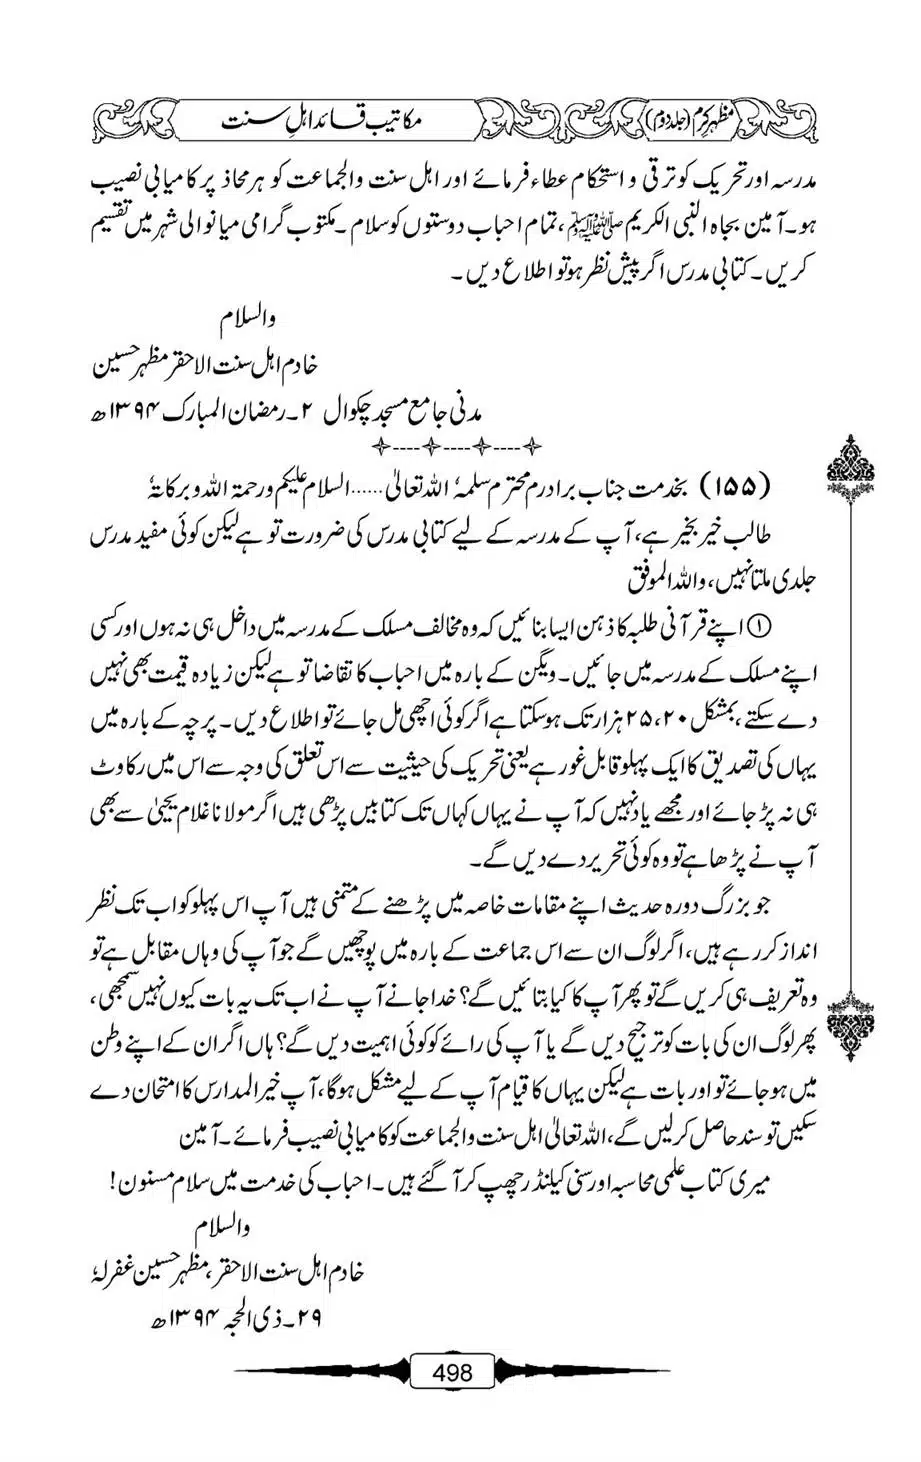 مظہرِ کرم (جلد دوم) مکاتیب قائد اہلِ سنت
مدرسہ اور تحریک کو ترقی و استحکام عطاء فرمائے اور اہل سنت والجماعت کو ہر محاذ پر کامیابی نصیب
ہو۔ آمین بجاہ النبی الکریم ﷺ، تمام احباب دوستوں کو سلام۔ مکتوب گرامی میانوالی شہر میں تقسیم
کریں۔ کتابی مدرس اگر پیش نظر ہو تو اطلاع دیں۔
والسلام
خادم اہل سنت الاحقر مظہر حسین
مدنی جامع مسجد چکوال ۲۔ رمضان المبارک ۱۳۹۴ھ
(۱۵۵) بخدمت جناب برادرم محترم سلمہٗ اللہ تعالیٰ...... السلام علیکم ورحمۃ اللہ وبرکاتہٗ
طالب خیر بخیر ہے، آپ کے مدرسہ کے لیے کتابی مدرس کی ضرورت تو ہے لیکن کوئی مفید مدرس
جلدی ملتا نہیں، واللہ الموفق
① اپنے قرآنی طلبہ کا ذہن ایسا بنائیں کہ وہ مخالف مسلک کے مدرسہ میں داخل ہی نہ ہوں اور کسی
اپنے مسلک کے مدرسہ میں جائیں۔ ویگن کے بارہ میں احباب کا تقاضا تو ہے لیکن زیادہ قیمت بھی نہیں
دے سکتے، بمشکل ۲۰، ۲۵ ہزار تک ہو سکتا ہے اگر کوئی اچھی مل جائے تو اطلاع دیں۔ پرچہ کے بارہ میں
یہاں کی تصدیق کا ایک پہلو قابل غور ہے یعنی تحریک کی حیثیت سے اس تعلق کی وجہ سے اس میں رکاوٹ
ہی نہ پڑ جائے اور مجھے یاد نہیں کہ آپ نے یہاں کہاں تک کتابیں پڑھی ہیں اگر مولانا غلام یحییٰ سے بھی
آپ نے پڑھا ہے تو وہ کوئی تحریر دے دیں گے۔
جو بزرگ دورہ حدیث اپنے مقامات خاصہ میں پڑھنے کے متمنی ہیں آپ اس پہلو کو اب تک نظر
انداز کر رہے ہیں، اگر لوگ ان سے اس جماعت کے بارہ میں پوچھیں گے جو آپ کی وہاں مقابل ہے تو
وہ تعریف ہی کریں گے تو پھر آپ کا کیا بتائیں گے؟ خدا جانے آپ نے اب تک یہ بات کیوں نہیں سمجھی،
پھر لوگ ان کی بات کو ترجیح دیں گے یا آپ کی رائے کو کوئی اہمیت دیں گے؟ ہاں اگر ان کے اپنے وطن
میں ہو جائے تو اور بات ہے لیکن یہاں کا قیام آپ کے لیے مشکل ہوگا، آپ خیر المدارس کا امتحان دے
سکیں تو سند حاصل کر لیں گے، اللہ تعالیٰ اہل سنت والجماعت کو کامیابی نصیب فرمائے۔ آمین
میری کتاب علمی محاسبہ اور سنی کیلنڈر چھپ کر آ گئے ہیں۔ احباب کی خدمت میں سلام مسنون!
والسلام
خادم اہل سنت الاحقر، مظہر حسین غفرلہٗ
۲۹۔ ذی الحجہ ۱۳۹۴ھ
498